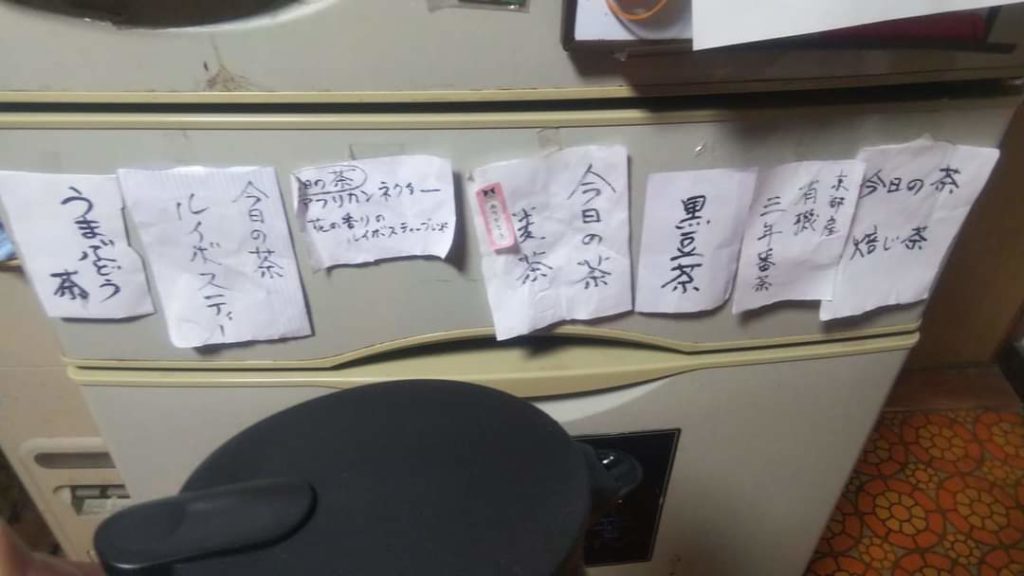 うまぶどう
茶
今日の茶
ルイボスティー
の茶
アフリカンネクター
花の香りの
ルイボスティーブレンド
今日の茶
麦茶
黒豆茶
京都産
有機
三年番茶
今日の茶
焙じ茶